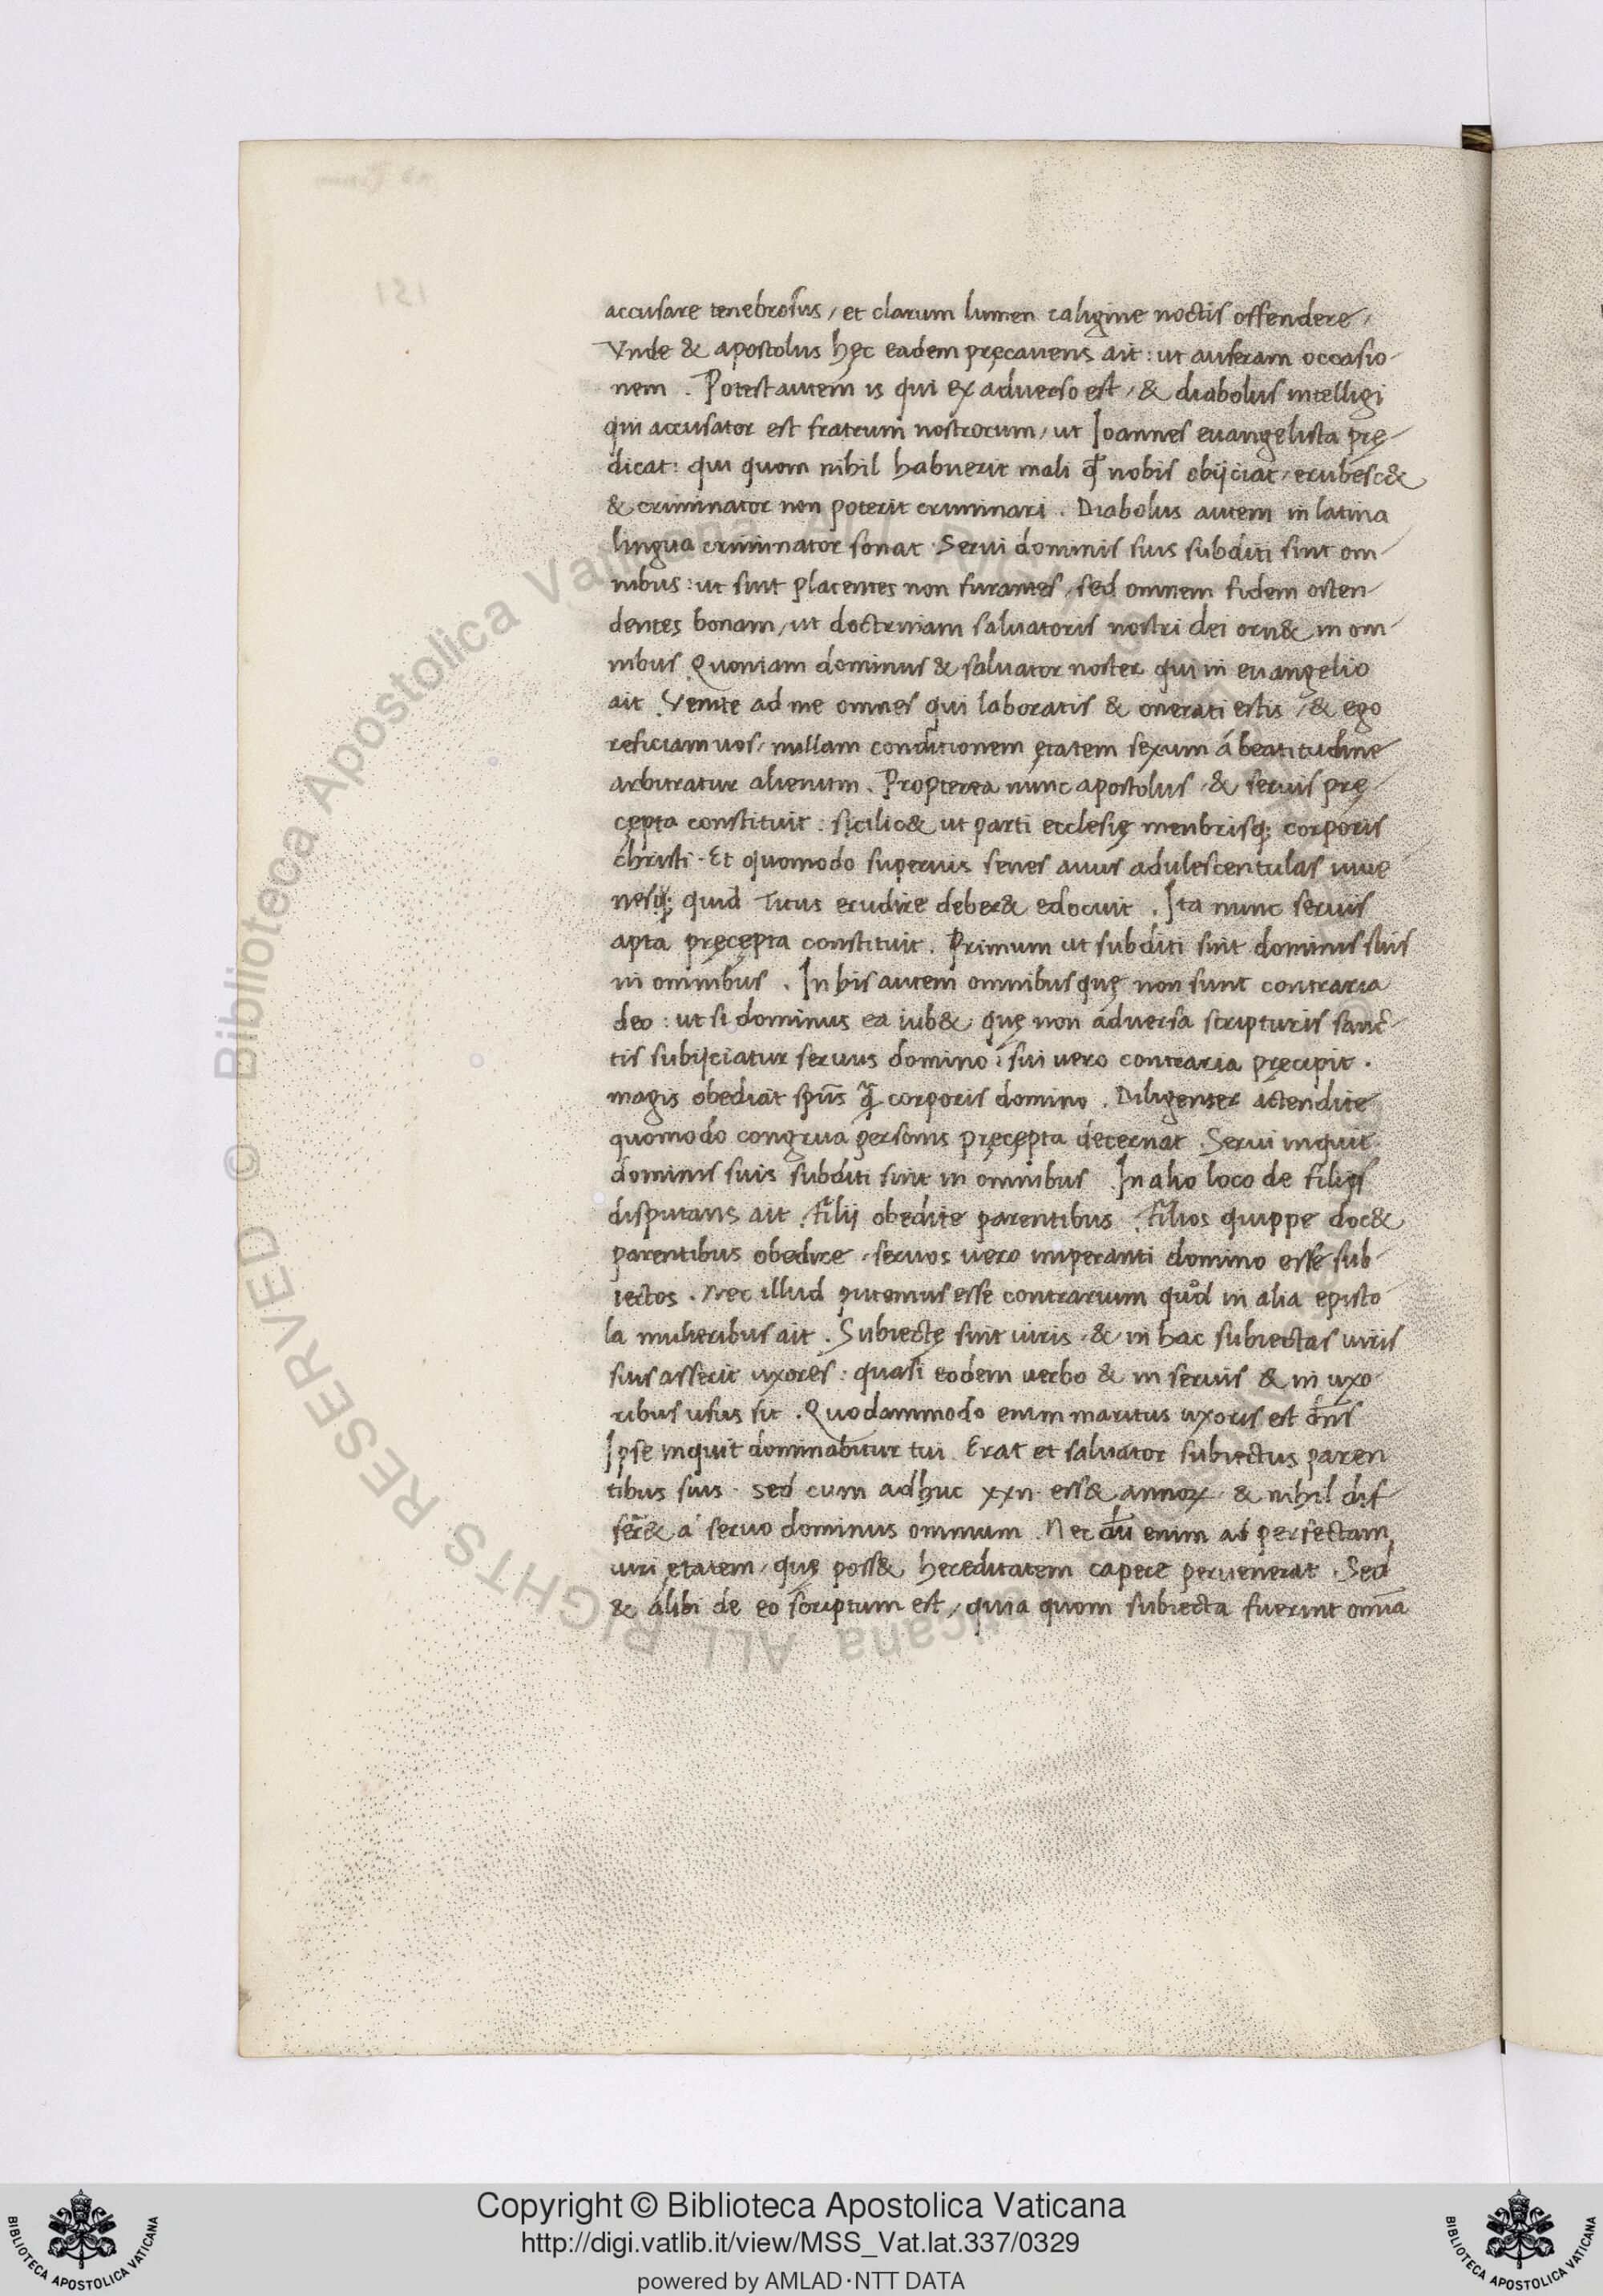 accusare tenebrosus, et clarum lumen caligine noctis offendere,
Vnde & apostolus hęc eadem pręcauens ait: ut auferam occasio-
nem. Potest autem is qui ex aduerso est, & diabolus intelligi
qui accusator est fratrum nostrorum, ut Joannes euangelista prę-
dicat: qui quom nihil habuerit mali qđ nobis obijciat, erubesc&
& criminator non poterit criminari. Diabolus autem in latina
lingua criminator sonat. Serui dominis suis subditi sint om-
nibus: ut sint placentes non furantes, sed omnem fidem osten-
dentes bonam, ut doctrinam saluatoris nostri dei orn& in om-
nibus. Quoniam dominus & saluator noster qui in euangelio
ait. Venite ad me omnes qui laboratis & onerati estis, & ego
reficiam uos, nullam conditionem ętatem sexum á beatitudine
arbitratur alienum. Propterea nunc apostolus & seruis prę-
cępta constituit: sicilic& ut parti ecclesię menbrisq; corporis
christi. Et quomodo superius senes anus adulescentulas iuue
nesq; quid Titus erudire deber& edocuit. Ita nunc seruis
apta pręcępta constituit. Primum ut subditi sint dominis suis
in omnibus. In his autem omnibus quę non sunt contraria
deo: ut si dominus ea iub& quę non aduersa scripturis sanc-
tis subijciatur seruus domino: sui uero contraria pręcipit.
magis obediat spūs q̄ corporis domino. Diligenter attendite
quomodo congrua personis pręcępta decernat. Serui inquit
dominis suis subditi sint in omnibus. In alio loco de filijs
disputans ait. filij obedite parentibus. filios quippe doc&
parentibus obedire, seruos uero imperanti domino esse sub-
iectos. Nec illud putemus esse contrarium quod in alia episto
la mulieribus ait. Subiectę sint uiris & in hac subiectas uiris
suis asserit uxores: quasi eodem uerbo & in seruis & in uxo
ribus usus sit. Quodammodo enim maritus uxoris est dn̄s
Ipse inquit dominabitur tui. Erat et saluator subiectus paren
tibus suis. sed cum adhuc xxn ess& annoꝝ & nihil dif-
ferr& a' seruo dominus omnium. Nec dū enim ad perfectam
uiri ętatem, quę poss& hereditatem capere peruenerat. Sed
& alibi de eo scriptum est, quia quom subiecta fuerint omīa
121
Copyright © Biblioteca Apostolica Vaticana
http://digi.vatlib.it/view/MSS_Vat.lat.337/0329
powered by AMLAD·NTT DATA
BIBLIOTECA APOSTOLICA VATICANA
BIBLIOTECA APOSTOLICA VATICANA
© Biblioteca Apostolica Vaticana ALL RIGHTS RESERVED